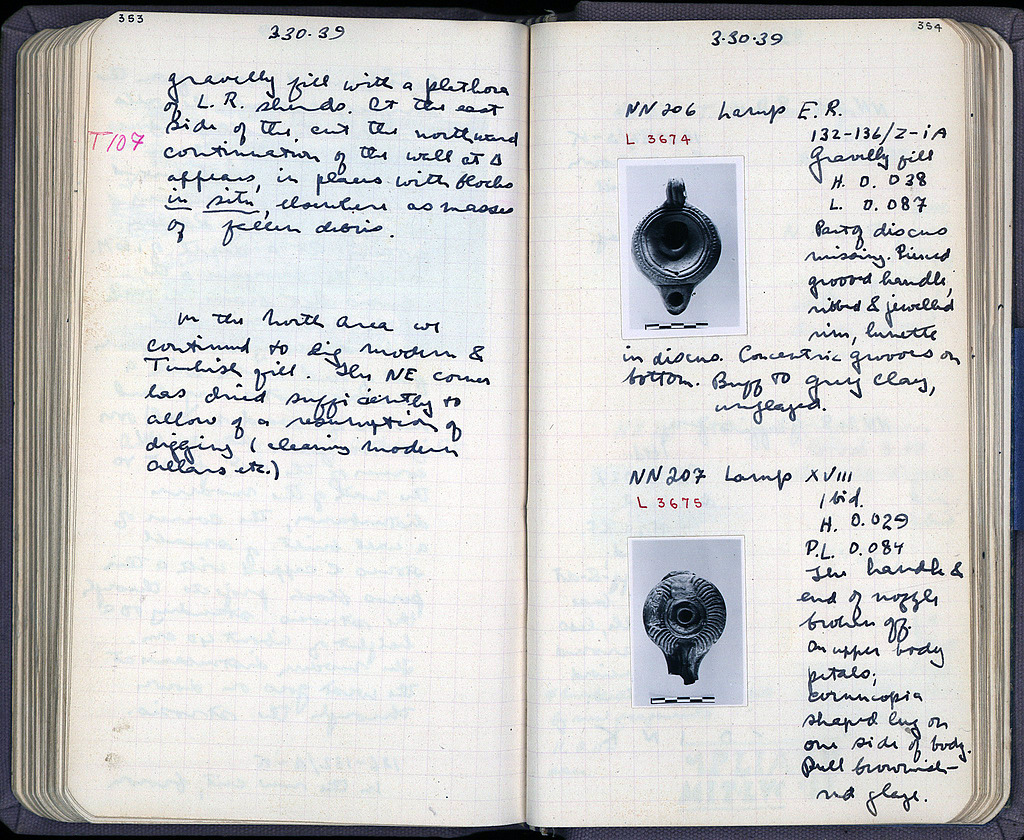 353
3·30·39
gravelly fill with a plethora
of L. R. sherds. At the east
T107
side of the cut the northward
continuation of the wall at Δ
appears, in places with blocks
in situ, elsewhere as masses
of fallen debris.
In the North Area we
continued to dig modern &
Turkish fill. The NE corner
has dried sufficiently to
allow of a resumption of
digging (cleaning modern
cellars etc.)
354
3·30·39
NN206 Lamp E.R.
L 3674
132-136/Z-iA
Gravelly fill
H. 0.038
L. 0.087
Part of discus
missing. Pierced
grooved handle,
ribbed & jewelled
rim, lunette
in discus. Concentric grooves on
bottom. Buff to grey clay,
unglazed.
NN207 Lamp XVIII
L 3675
Ibid.
H. 0.029
P.L. 0.084
The handle &
end of nozzle
broken off.
On upper body
petals;
cornucopia
shaped lug on
one side of body.
Dull brownish-
red glaze.